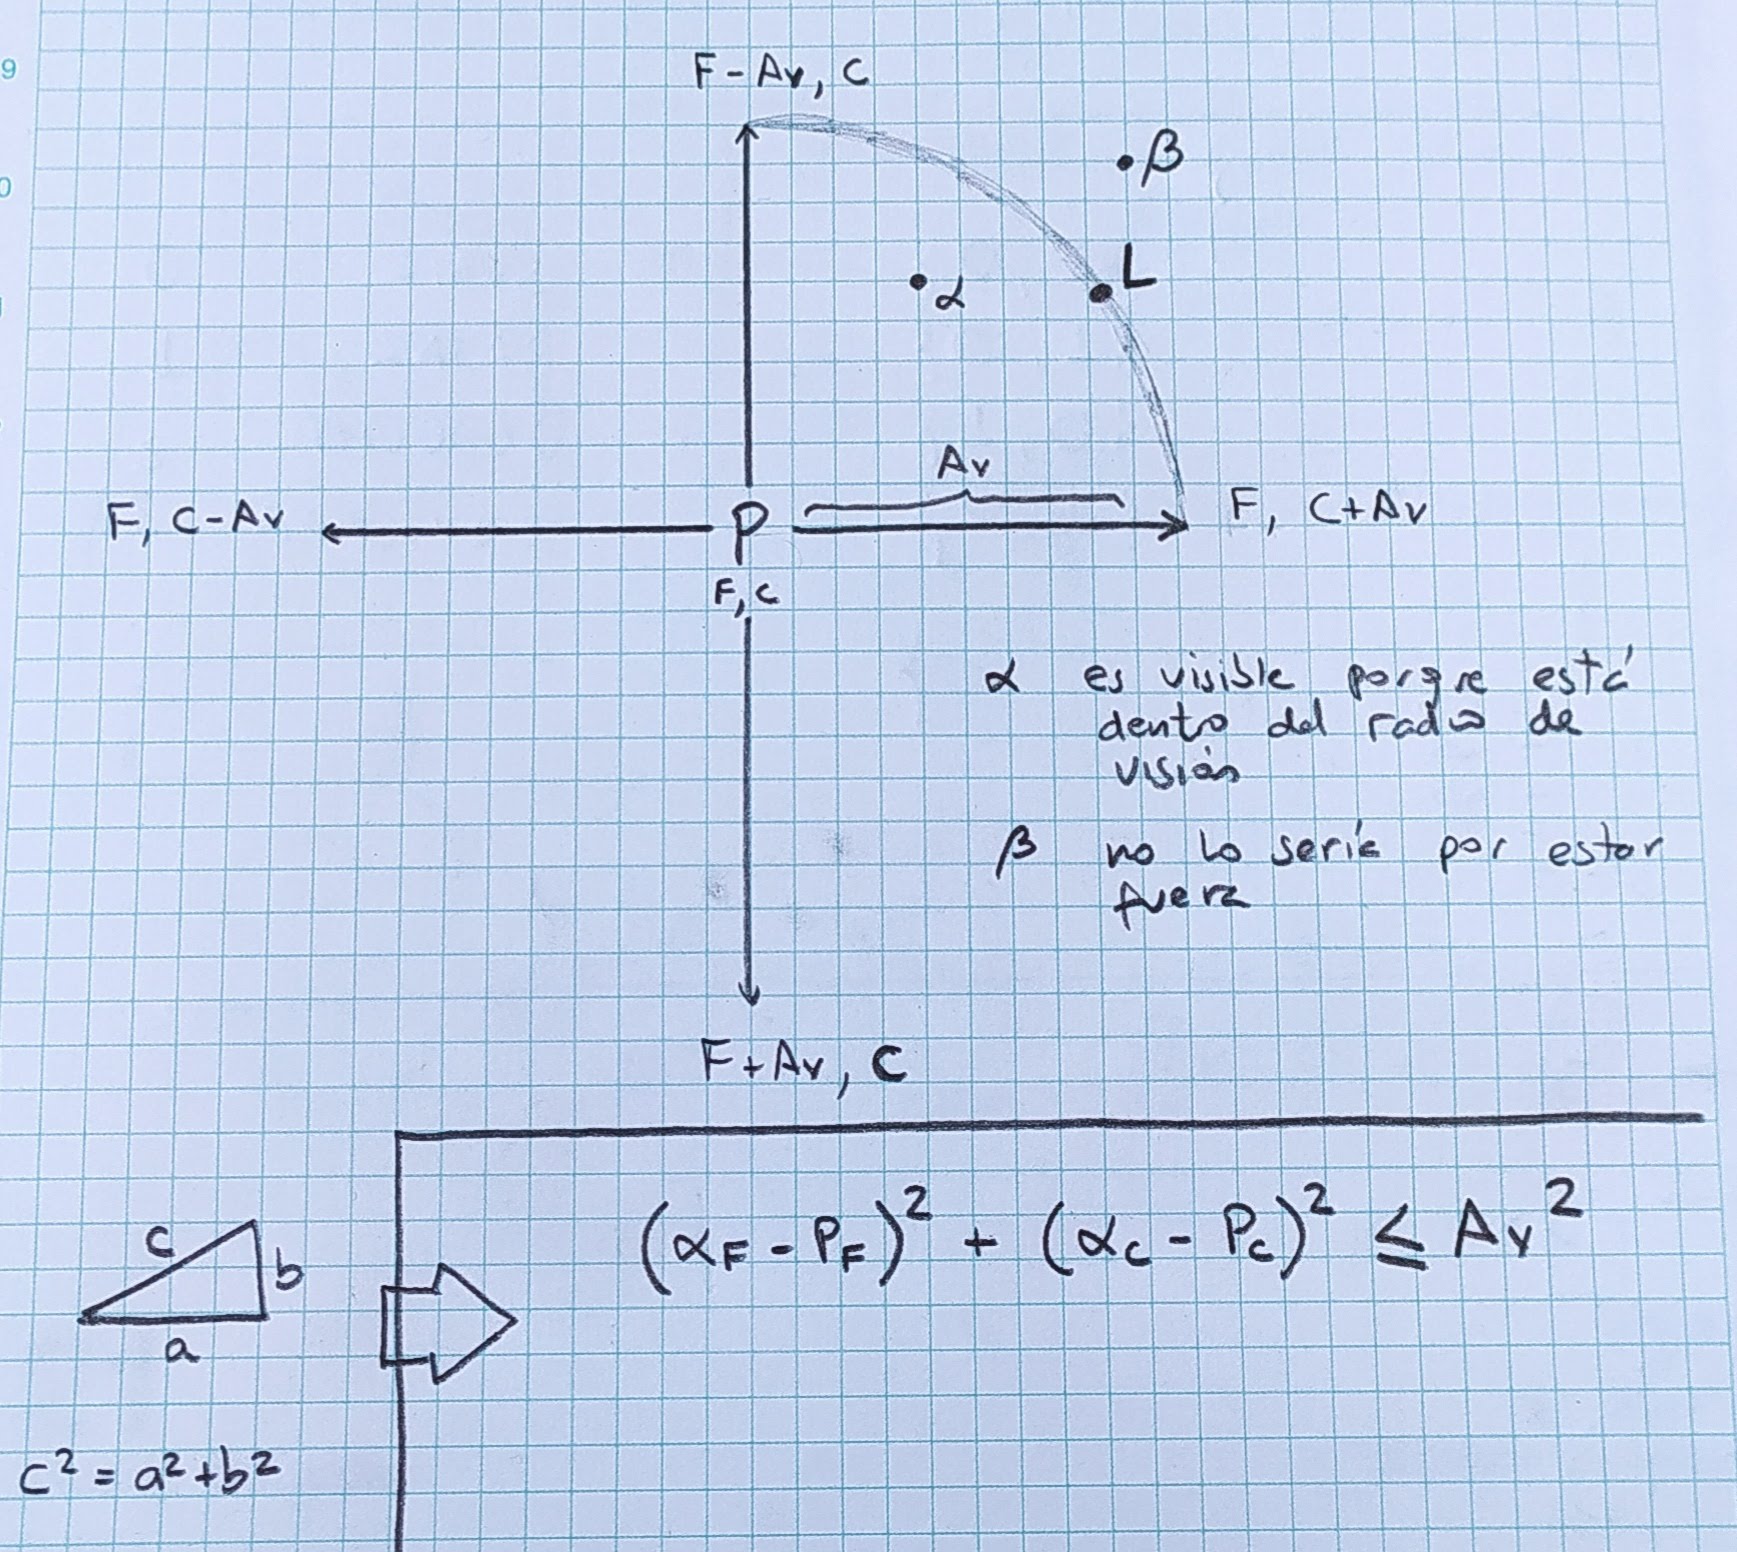 9
F-Av, C
β
0
α
L
Av
F, C-Av
P
F, C+Av
F, C
α es visible porque está
dentro del radio de
visión
β no lo sería por estar
fuera
F+Av, C
(αF - PF)² + (αC - PC)² ≤ Av²
c
b
a
c² = a² + b²